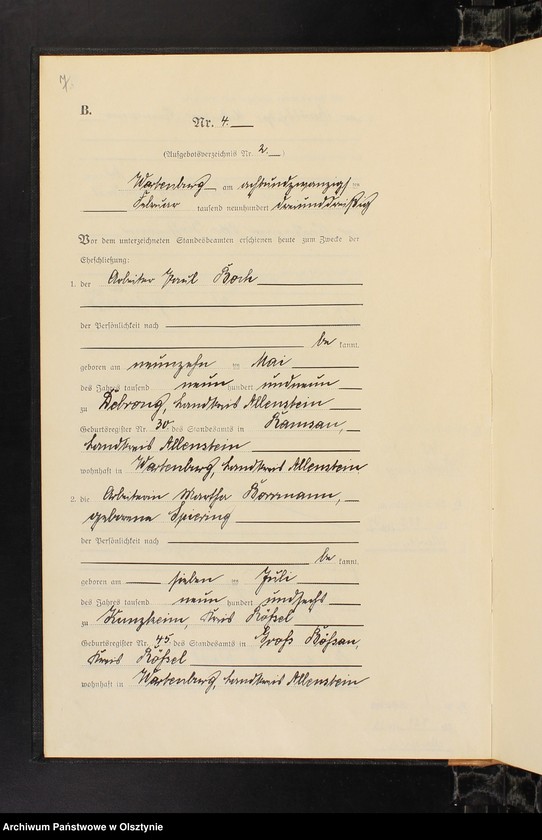 7.
B.
Nr. 4.
(Aufgebotsverzeichnis Nr. 2.)
Wartenburg am achtundzwanzigsten
Februar tausend neunhundert dreiunddreißig
Vor dem unterzeichneten Standesbeamten erschienen heute zum Zwecke der
Eheschließung:
1. der Arbeiter Paul Boch
der Persönlichkeit nach
be kannt,
geboren am neunzehn ten Mai
des Jahres tausend neun hundert undneun
zu Debrong, Landkreis Allenstein
Geburtsregister Nr. 30 des Standesamts in Ramsau,
Landkreis Allenstein
wohnhaft in Wartenburg, Landkreis Allenstein
2. die Arbeiterin Martha Bormann,
geborene Spiering
der Persönlichkeit nach
be kannt,
geboren am sieben ten Juli
des Jahres tausend neun hundert undsechs
zu Kunzkeim, Kreis Rößel
Geburtsregister Nr. 45 des Standesamts in Groß Bößau,
Kreis Rößel
wohnhaft in Wartenburg, Landkreis Allenstein
Archiwum Państwowe w Olsztynie